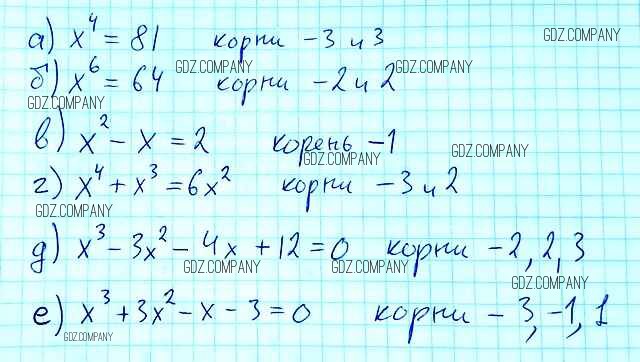 а) x⁴ = 81 корни -3 и 3 GDZ.COMPANY
GDZ.COMPANY GDZ.COMPANY
б) x⁶ = 64 корни -2 и 2
GDZ.COMPANY
в) x² - x = 2 корень -1 GDZ.COMPANY
GDZ.COMPANY
г) x⁴ + x³ = 6x² корни -3 и 2
GDZ.COMPANY
д) x³ - 3x² - 4x + 12 = 0 корни -2, 2, 3
GDZ.COMPANY GDZ.COMPANY
GDZ.COMPANY
е) x³ + 3x² - x - 3 = 0 корни -3, -1, 1
GDZ.COMPANY